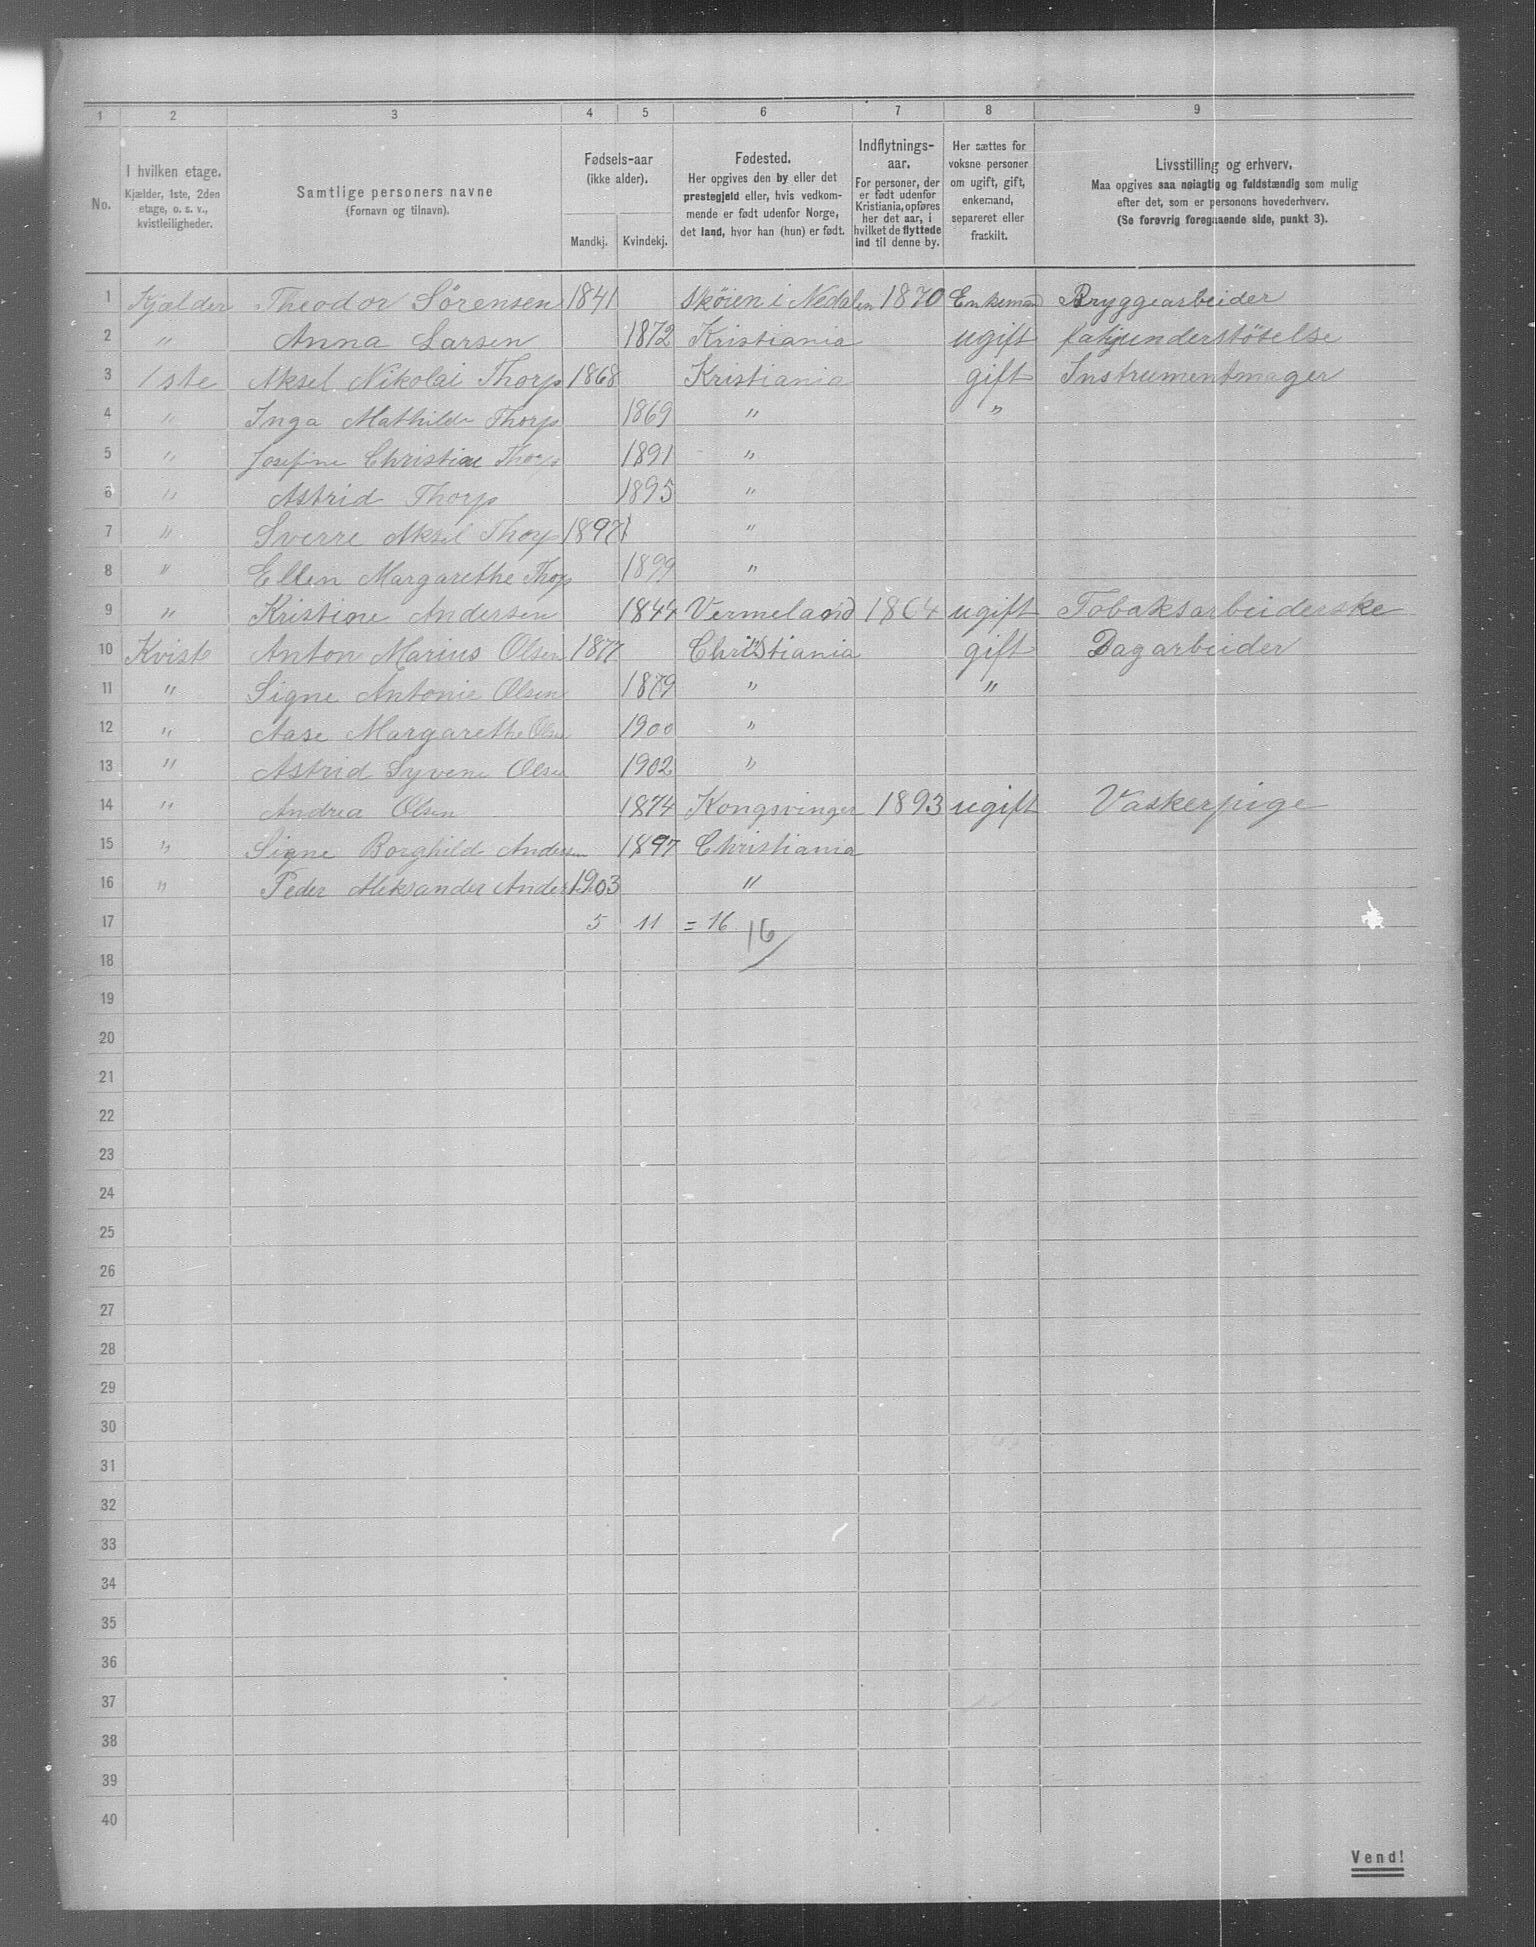 1 2 3 4 5 6 7 8 9
No.
I hvilken etage.
Kjælder, 1ste, 2den
etage, o. s. v.,
kvistleiligheder.
Samtlige personers navne
(Fornavn og tilnavn).
Fødsels-aar
(ikke alder).
Mandkj. Kvindekj.
Fødested.
Her opgives den by eller det
prestegjeld eller, hvis vedkom-
mende er født udenfor Norge,
det land, hvor han (hun) er født.
Indflytnings-
aar.
For personer, der
er født udenfor
Kristiania, opføres
her det aar, i
hvilket de flyttede
ind til denne by.
Her sættes for
voksne personer
om ugift, gift,
enkemand,
separeret eller
fraskilt.
Livsstilling og erhverv.
Maa opgives saa nøiagtig og fuldstændig som mulig
efter det, som er personens hovederhverv.
(Se forøvrig foregaaende side, punkt 3).
1 Kjælder Theodor Sörensen 1841 Skøien i Nedalen 1870 Enkemand Bryggearbeider
2 " Anna Larsen 1872 Kristiania ugift
3 1ste Aksel Nikolai Thorp 1868 Kristiania gift Instrumentmager
4 " Inga Mathilde Thorp 1869 " "
5 " Josefine Christine Thorp 1891 "
6 " Astrid Thorp 1895 "
7 " Sverre Aksel Thorp 1897 "
8 " Ellen Margarethe Thorp 1899 "
9 " Kristine Andersen 1844 Vermeland 1864 ugift Tobaksarbeiderske
10 Kvist Anton Marius Olsen 1877 Christiania gift Dagarbeider
11 " Signe Antonie Olsen 1879 " "
12 " Aase Margarethe Olsen 1900 "
13 " Astrid Syvene Olsen 1902 "
14 " Andrea Olsen 1874 Kongsvinger 1893 ugift Vaskerpige
15 " Signe Borghild Andersen 1897 Christiania
16 " Peder Aleksander Anders 1903 "
17 5 11 = 16 16
18
19
20
21
22
23
24
25
26
27
28
29
30
31
32
33
34
35
36
37
38
39
40
Vend!